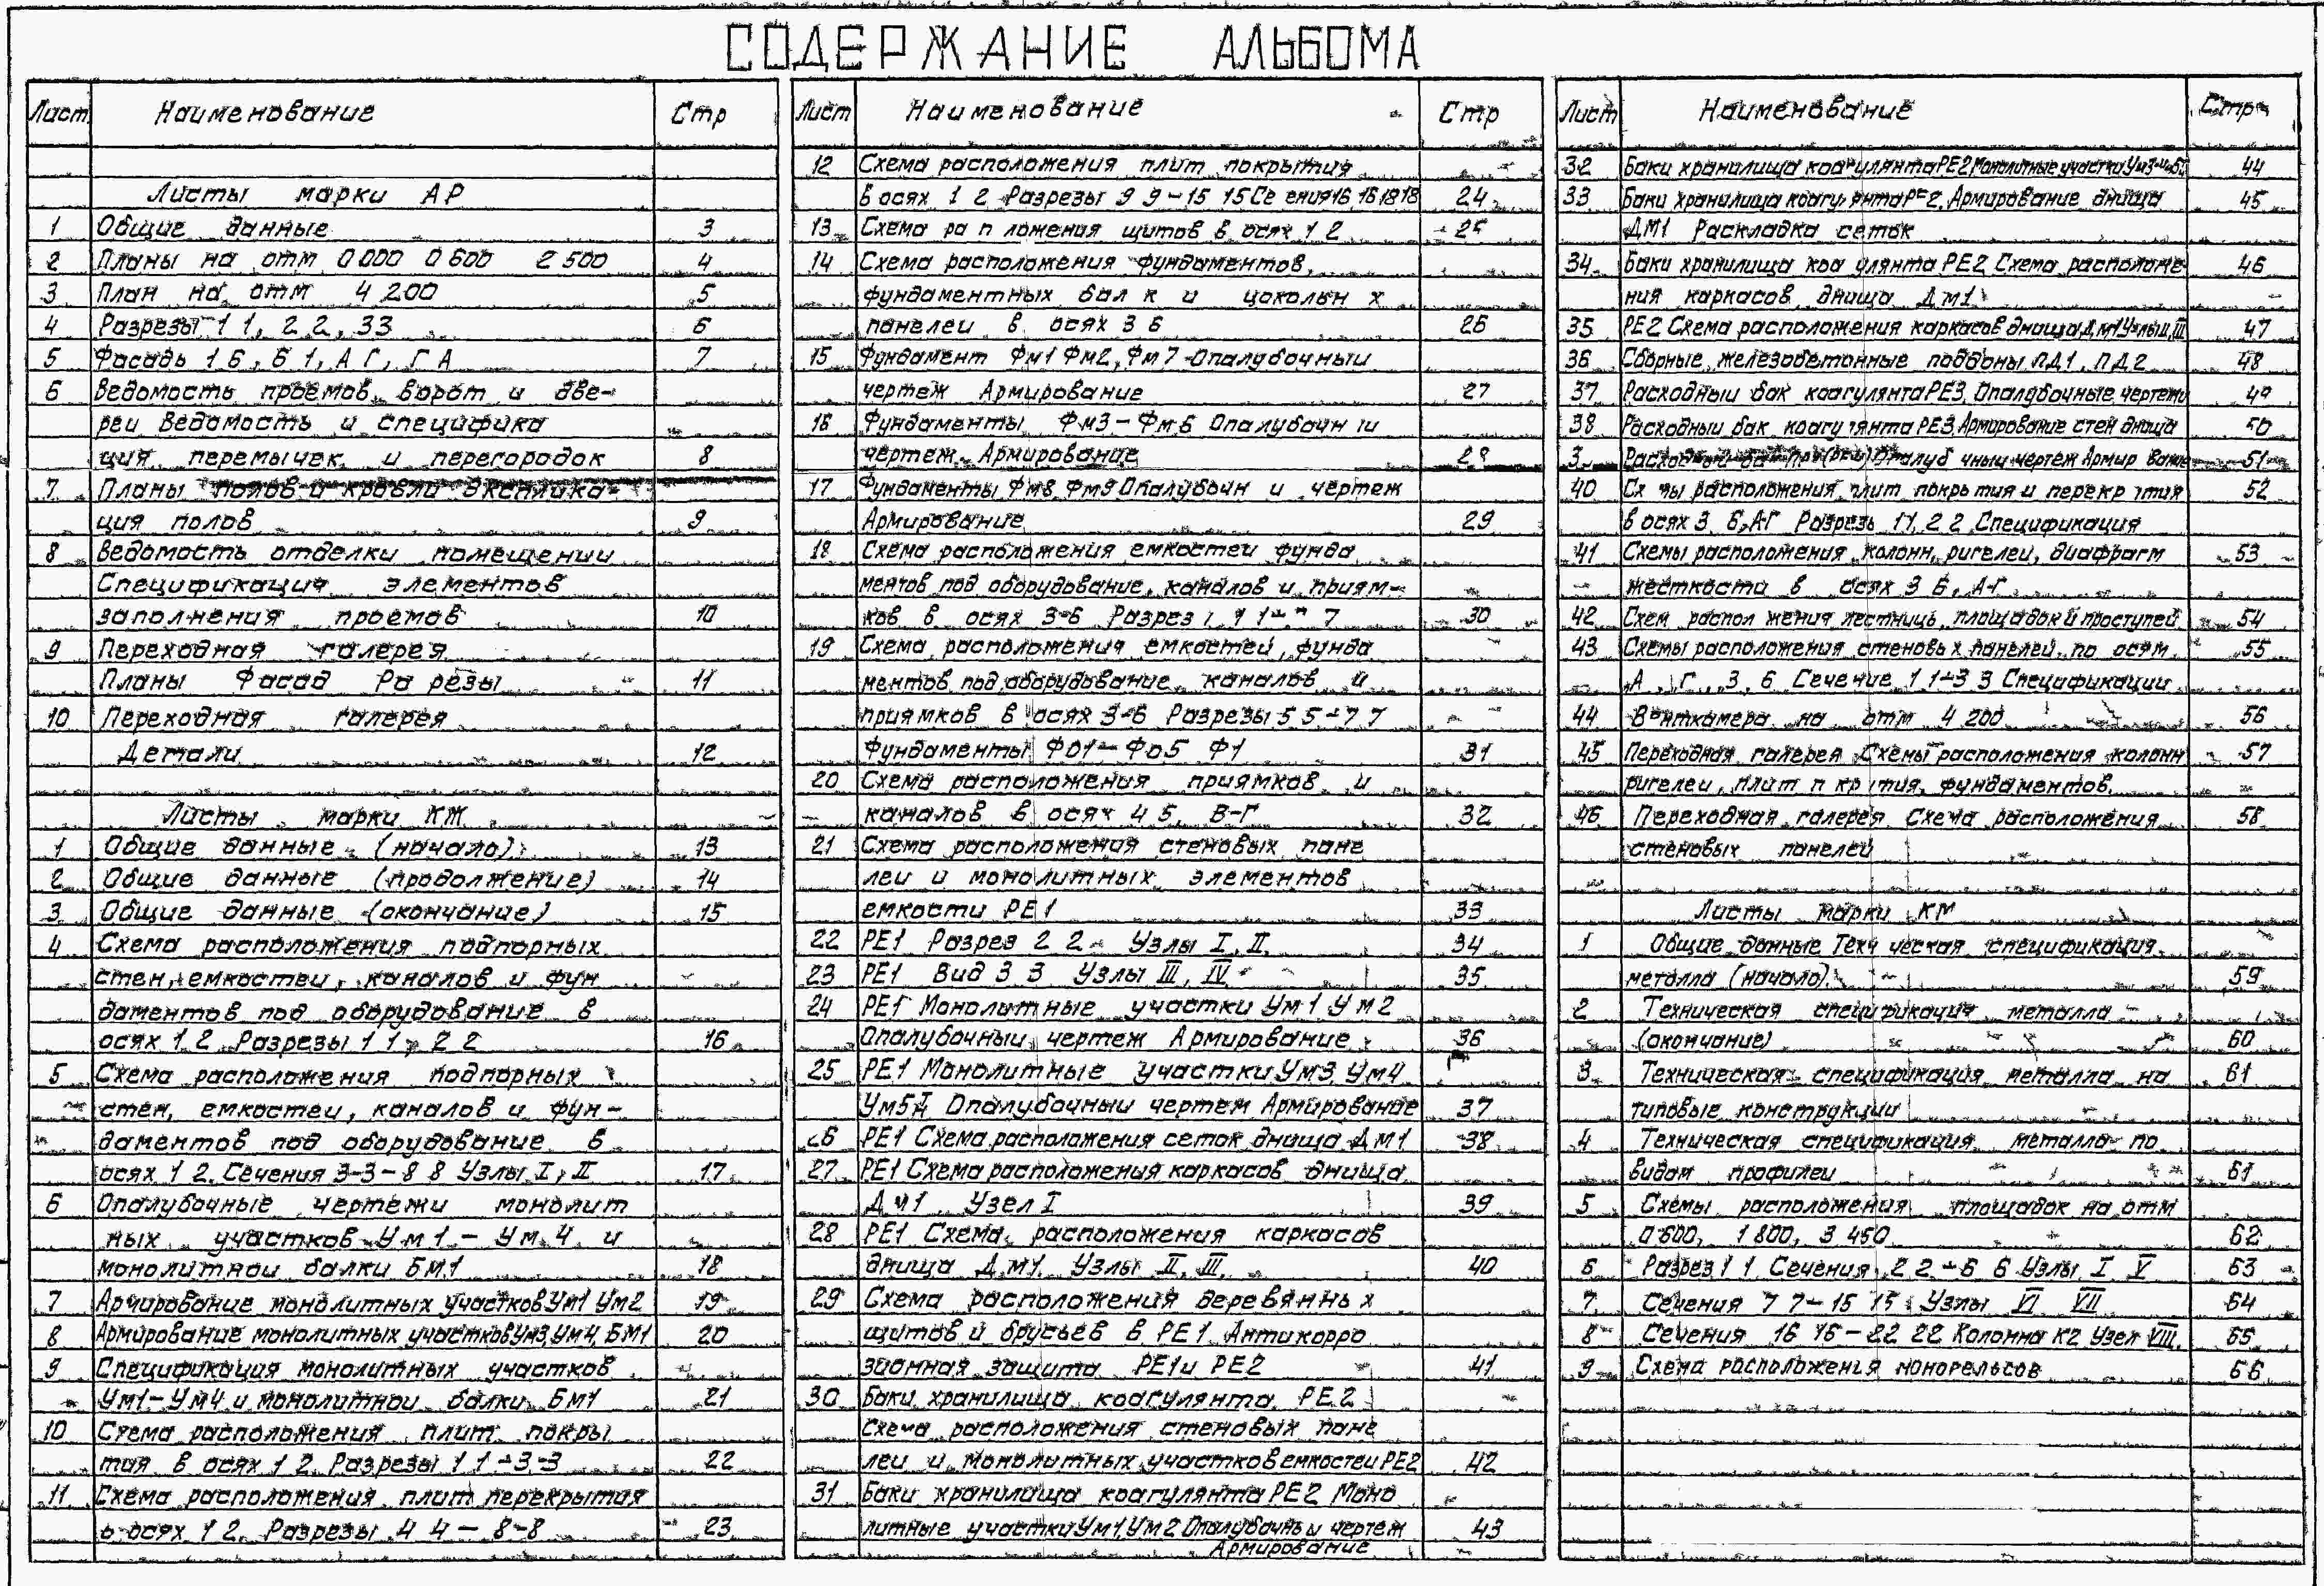 СОДЕРЖАНИЕ АЛЬБОМА
Лист Наименование Стр
Листы марки АР
1 Общие данные 3
2 Планы на отм 0 000 0 600 2 500 4
3 План на отм 4 200 5
4 Разрезы 1 1, 2 2, 3 3 6
5 Фасадь 1 6, 6 1, А Г, Г А 7
6 Ведомость проемов ворот и две-
реи Ведомость и специфика
ция перемычек и перегородок 8
7 Планы полов и кровли Эксплика-
ция полов 9
8 Ведомость отделки помещении
Спецификация элементов
заполнения проемов 10
9 Переходная галерея
Планы Фасад Ра резы 11
10 Переходная галерея
Детали 12
Листы марки КЖ
1 Общие данные (начало) 13
2 Общие данные (продолжение) 14
3 Общие данные (окончание) 15
4 Схема расположения подпорных
стен, емкостеи, каналов и фун
даментов под оборудование в
осях 1 2 Разрезы 1 1, 2 2 16
5 Схема расположения подпорных
стен, емкостеи, каналов и фун-
даментов под оборудование в
осях 1 2. Сечения 3-3-8 8 Узлы I, II 17
6 Опалубочные чертежи монолит
ных участков Ум 1 - Ум 4 и
монолитнои балки БМ1 18
7 Армирование монолитных участков Ум1 Ум2 19
8 Армирование монолитных участков Ум3, Ум4, БМ1 20
9 Спецификация монолитных участков
Ум1-Ум4 и монолитнои балки БМ1 21
10 Схема расположения плит покры
тия в осях 1 2. Разрезы 1 1-3-3 22
11 Схема расположения плит перекрытия
в осях 1 2. Разрезы 4 4 - 8-8 23
Лист Наименование Стр
12 Схема расположения плит покрытия
в осях 1 2 Разрезы 9 9-15 15 Се ения 16 16 18 18 24
13 Схема ра п ложения щитов в осях 1 2 25
14 Схема расположения фундаментов,
фундаментных бал к и цокольн х
панелеи в осях 3 6 26
15 Фундамент Фм1 Фм2, Фм7 Опалубочныи
чертеж Армирование 27
16 Фундаменты Фм3-Фм6 Опалубочн и
чертеж Армирование 28
17 Фундаменты Фм8, Фм9 Опалубочн и чертеж
Армирование 29
18 Схема расположения емкостеи фунда
ментов под оборудование, каналов и приям-
ков в осях 3-6 Разрез 30
19 Схема расположения емкостей, фунда
ментов под оборудование каналов и
приямков в осях 3-6 Разрезы 5 5-7 7
Фундаменты Ф01-Фо5 Ф1 31
20 Схема расположения приямков и
каналов в осях 4 5, В-Г 32
21 Схема расположения стеновых пане
леи и монолитных элементов
емкости РЕ1 33
22 РЕ1 Разрез 2 2 Узлы I, II 34
23 РЕ1 Вид 3 3 Узлы III, IV 35
24 РЕ1 Монолитные участки Ум 1 Ум 2
Опалубочныи чертеж Армирование 36
25 РЕ1 Монолитные участки Ум3, Ум4
Ум5 Опалубочныи чертеж Армирование 37
26 РЕ1 Схема расположения сеток днища Дм1 38
27 РЕ1 Схема расположения каркасов днища
Дм1 Узел I 39
28 РЕ1 Схема расположения каркасов
днища Дм1 Узлы II, III 40
29 Схема расположения деревяннь х
щитов и брусьев в РЕ1 Антикорро
зионная защита РЕ1 и РЕ2 41
30 Баки хранилища коагулянта РЕ2
Схема расположения стеновых пане
леи и монолитных участков емкостеи РЕ2 42
31 Баки хранилища коагулянта РЕ2 Моно
литные участки Ум1, Ум2 Опалубочны и чертеж 43
Армирование
Лист Наименование Стр
32 Баки хранилища коагулянта РЕ2 Монолитные участки 44
33 Баки хранилища коагу янта РЕ2. Армирование днища 45
ДМ1 Раскладка сеток
34 Баки хранилища коа улянта РЕ2 Схема расположе- 46
ния каркасов днища Дм1
35 РЕ2 Схема расположения каркасов днища Дм1 Узлы II, III 47
36 Сборные железобетонные поддоны ПД1, ПД2 48
37 Расходныи бак коагулянта РЕ3. Опалубочные чертежи 49
38 Расходныи бак коагу янта РЕ3 Армирование стен днища 50
3 Расходныи Опалуб чныи чертеж Армир вание 51
40 Сх мы расположения плит покрь тия и перекр тия 52
в осях 3 6, А-Г Разрезь 1 1, 2 2 Спецификация
41 Схемы расположения колонн, ригелеи, диафрагм 53
жесткости в осях 3 6, А-Г
42 Схем распол жения лестниць, площадок и проступей 54
43 Схемы расположения стеновь х панелей по осям 55
А, Г, 3, 6 Сечение 1 1-3 3 Спецификации
44 Венткамера на отм 4 200 56
45 Переходная галерея Схемы расположения колонн 57
ригелеи, плит п кр тия, фундаментов
46 Переходная галерея Схема расположения 58
стеновых панелей
Листы марки КМ
1 Общие данные Техн ческая спецификация
металла (начало) 59
2 Техническая спецификация металла
(окончание) 60
3 Техническая спецификация металла на 61
типовые конструкции
4 Техническая спецификация металла по
видам профилеи 61
5 Схемы расположения площадок на отм
0 600, 1 800, 3 450 62
6 Разрез 1 1 Сечения 2 2-6 6 Узлы I V 63
7 Сечения 7 7-15 15 Узлы VI VII 64
8 Сечения 16 16-22 22 Колонна К2 Узел VIII 65
9 Схема расположения монорельсов 66